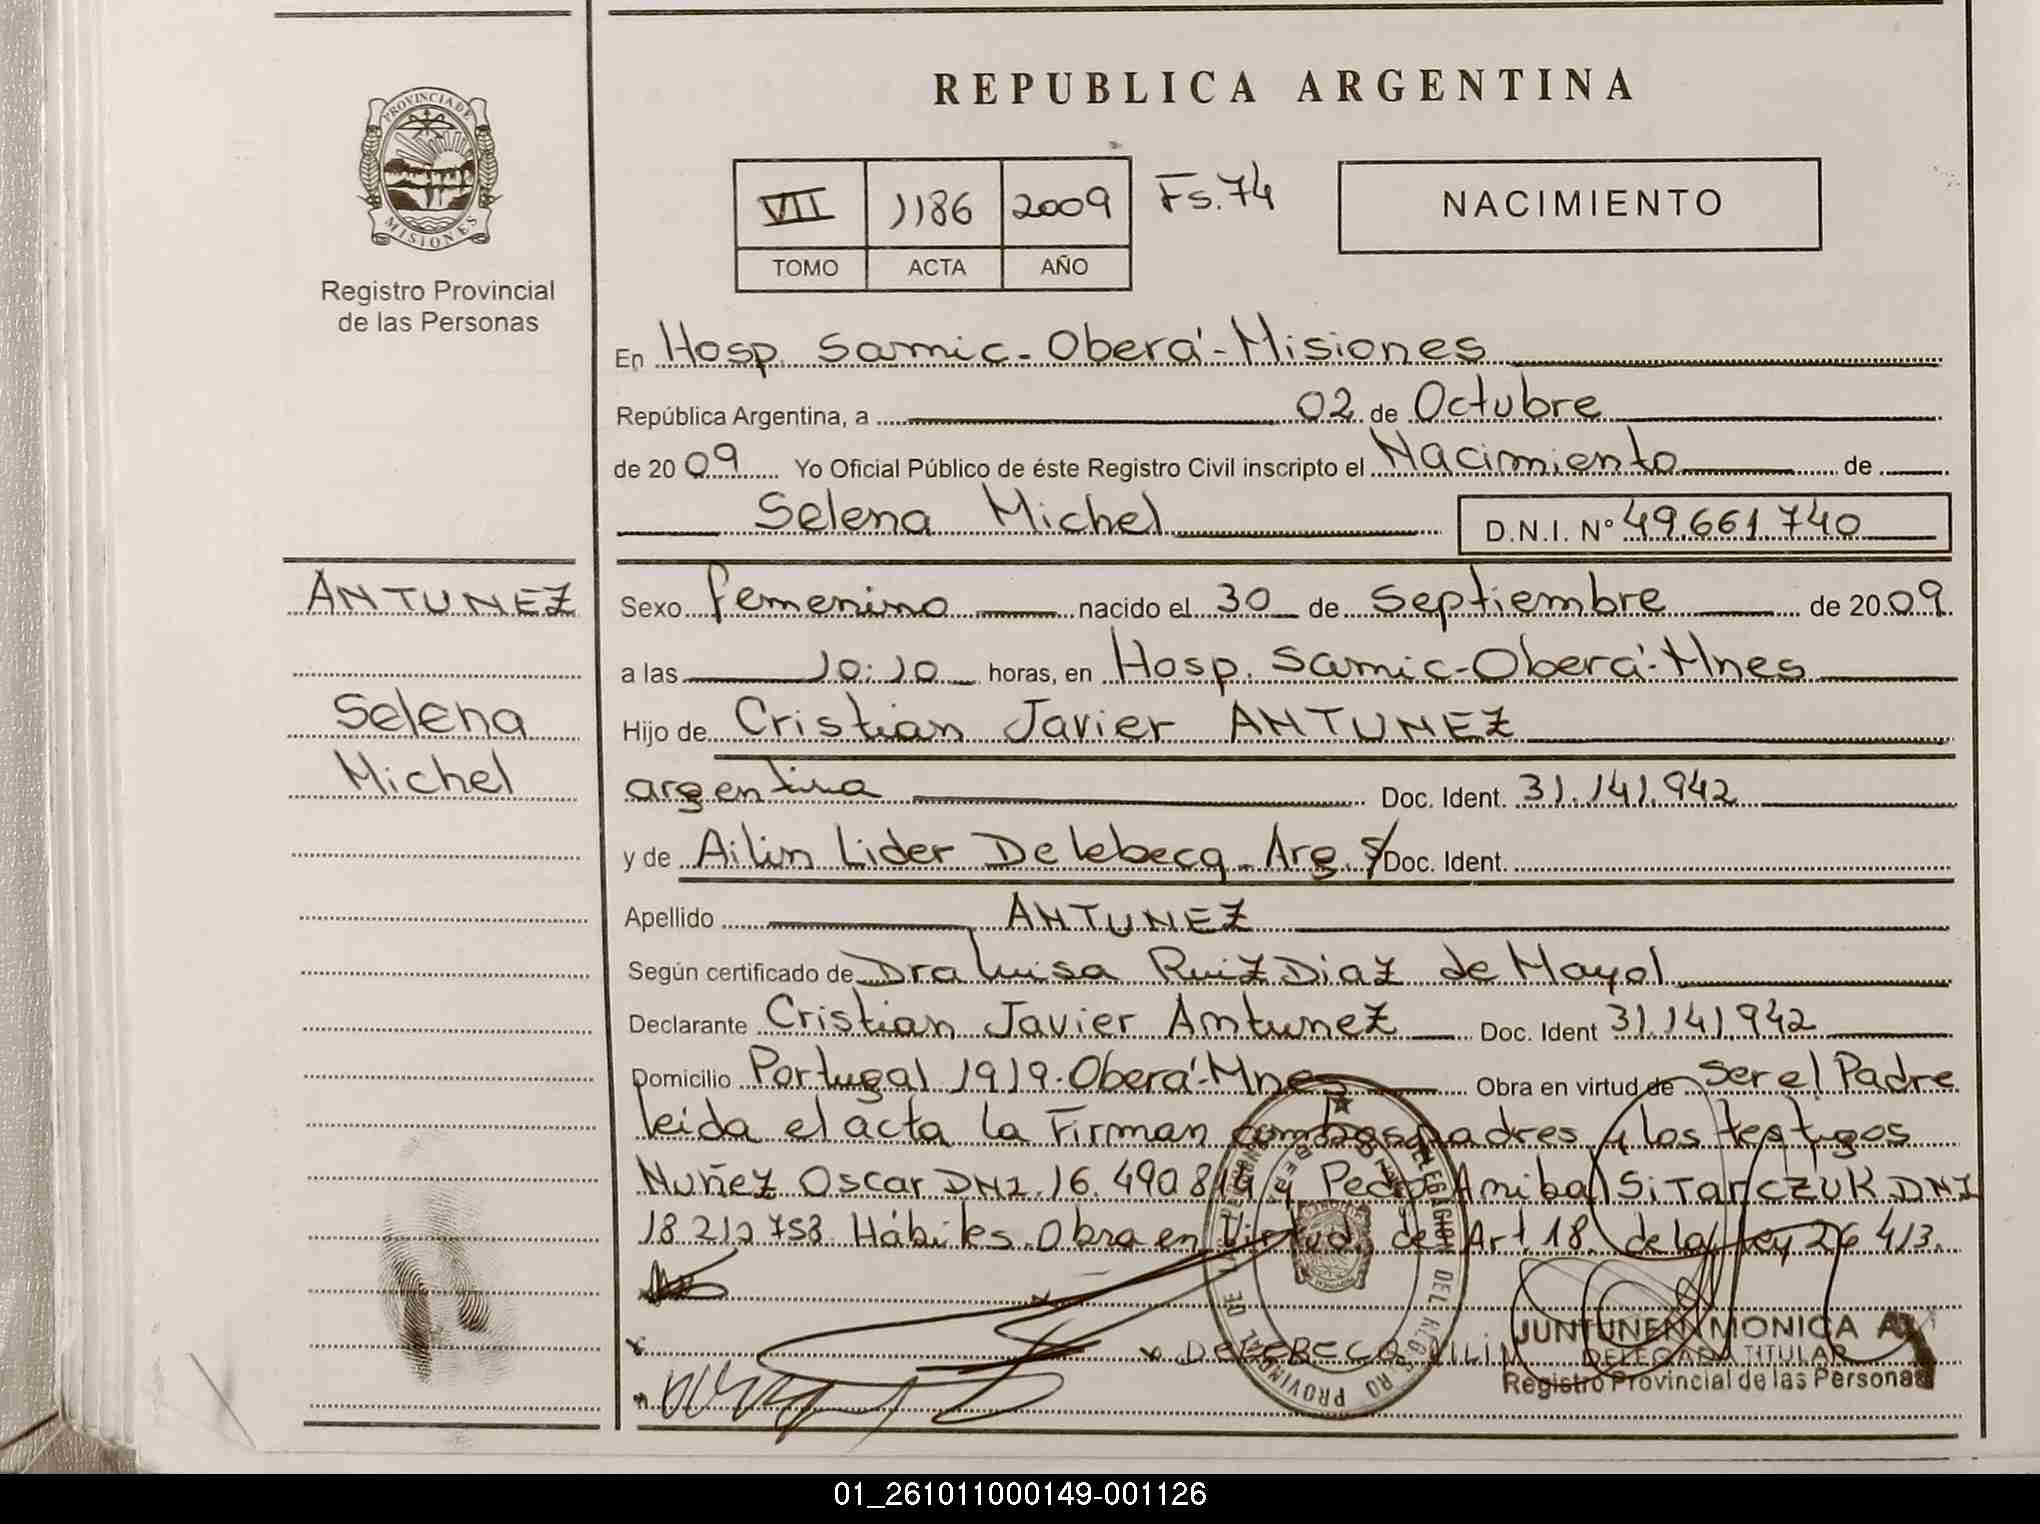 REPUBLICA ARGENTINA
PROVINCIA DE
MISIONES
Registro Provincial
de las Personas
VII 1186 2009 Fs. 74
TOMO ACTA AÑO
NACIMIENTO
En Hosp. Samic - Oberá - Misiones
República Argentina, a 02 de Octubre
de 2009 Yo Oficial Público de éste Registro Civil inscripto el Nacimiento de
Selena Michel D.N.I. N° 49.661.740
ANTUNEZ
Selena
Michel
Sexo femenino nacido el 30 de Septiembre de 20 09
a las 10:10 horas, en Hosp. Samic - Oberá - Mnes
Hijo de Cristian Javier ANTUNEZ
argentina Doc. Ident. 31.141.942
y de Ailin Lider Delebecq - Arg. S/ Doc. Ident.
Apellido ANTUNEZ
Según certificado de Dra Luisa Ruiz Diaz de Mayol
Declarante Cristian Javier Antunez Doc. Ident 31.141.942
Domicilio Portugal 1919 - Oberá - Mnes Obra en virtud de Ser el Padre
leida el acta la Firman ambos padres y los testigos
Nuñez Oscar DNI 16.490 814 y Pedro Anibal SiTarCZUK DNI
18 212 753 Hábiles. Obra en Virtud de Art 18 de la Ley 26 413.
DELEBECQ AILIN
JUNTUNEN MONICA A.
DELEGADA TITULAR
Registro Provincial de las Personas
DELEGACION DEL REGISTRO PROVINCIAL DE LAS PERSONAS
01_261011000149-001126